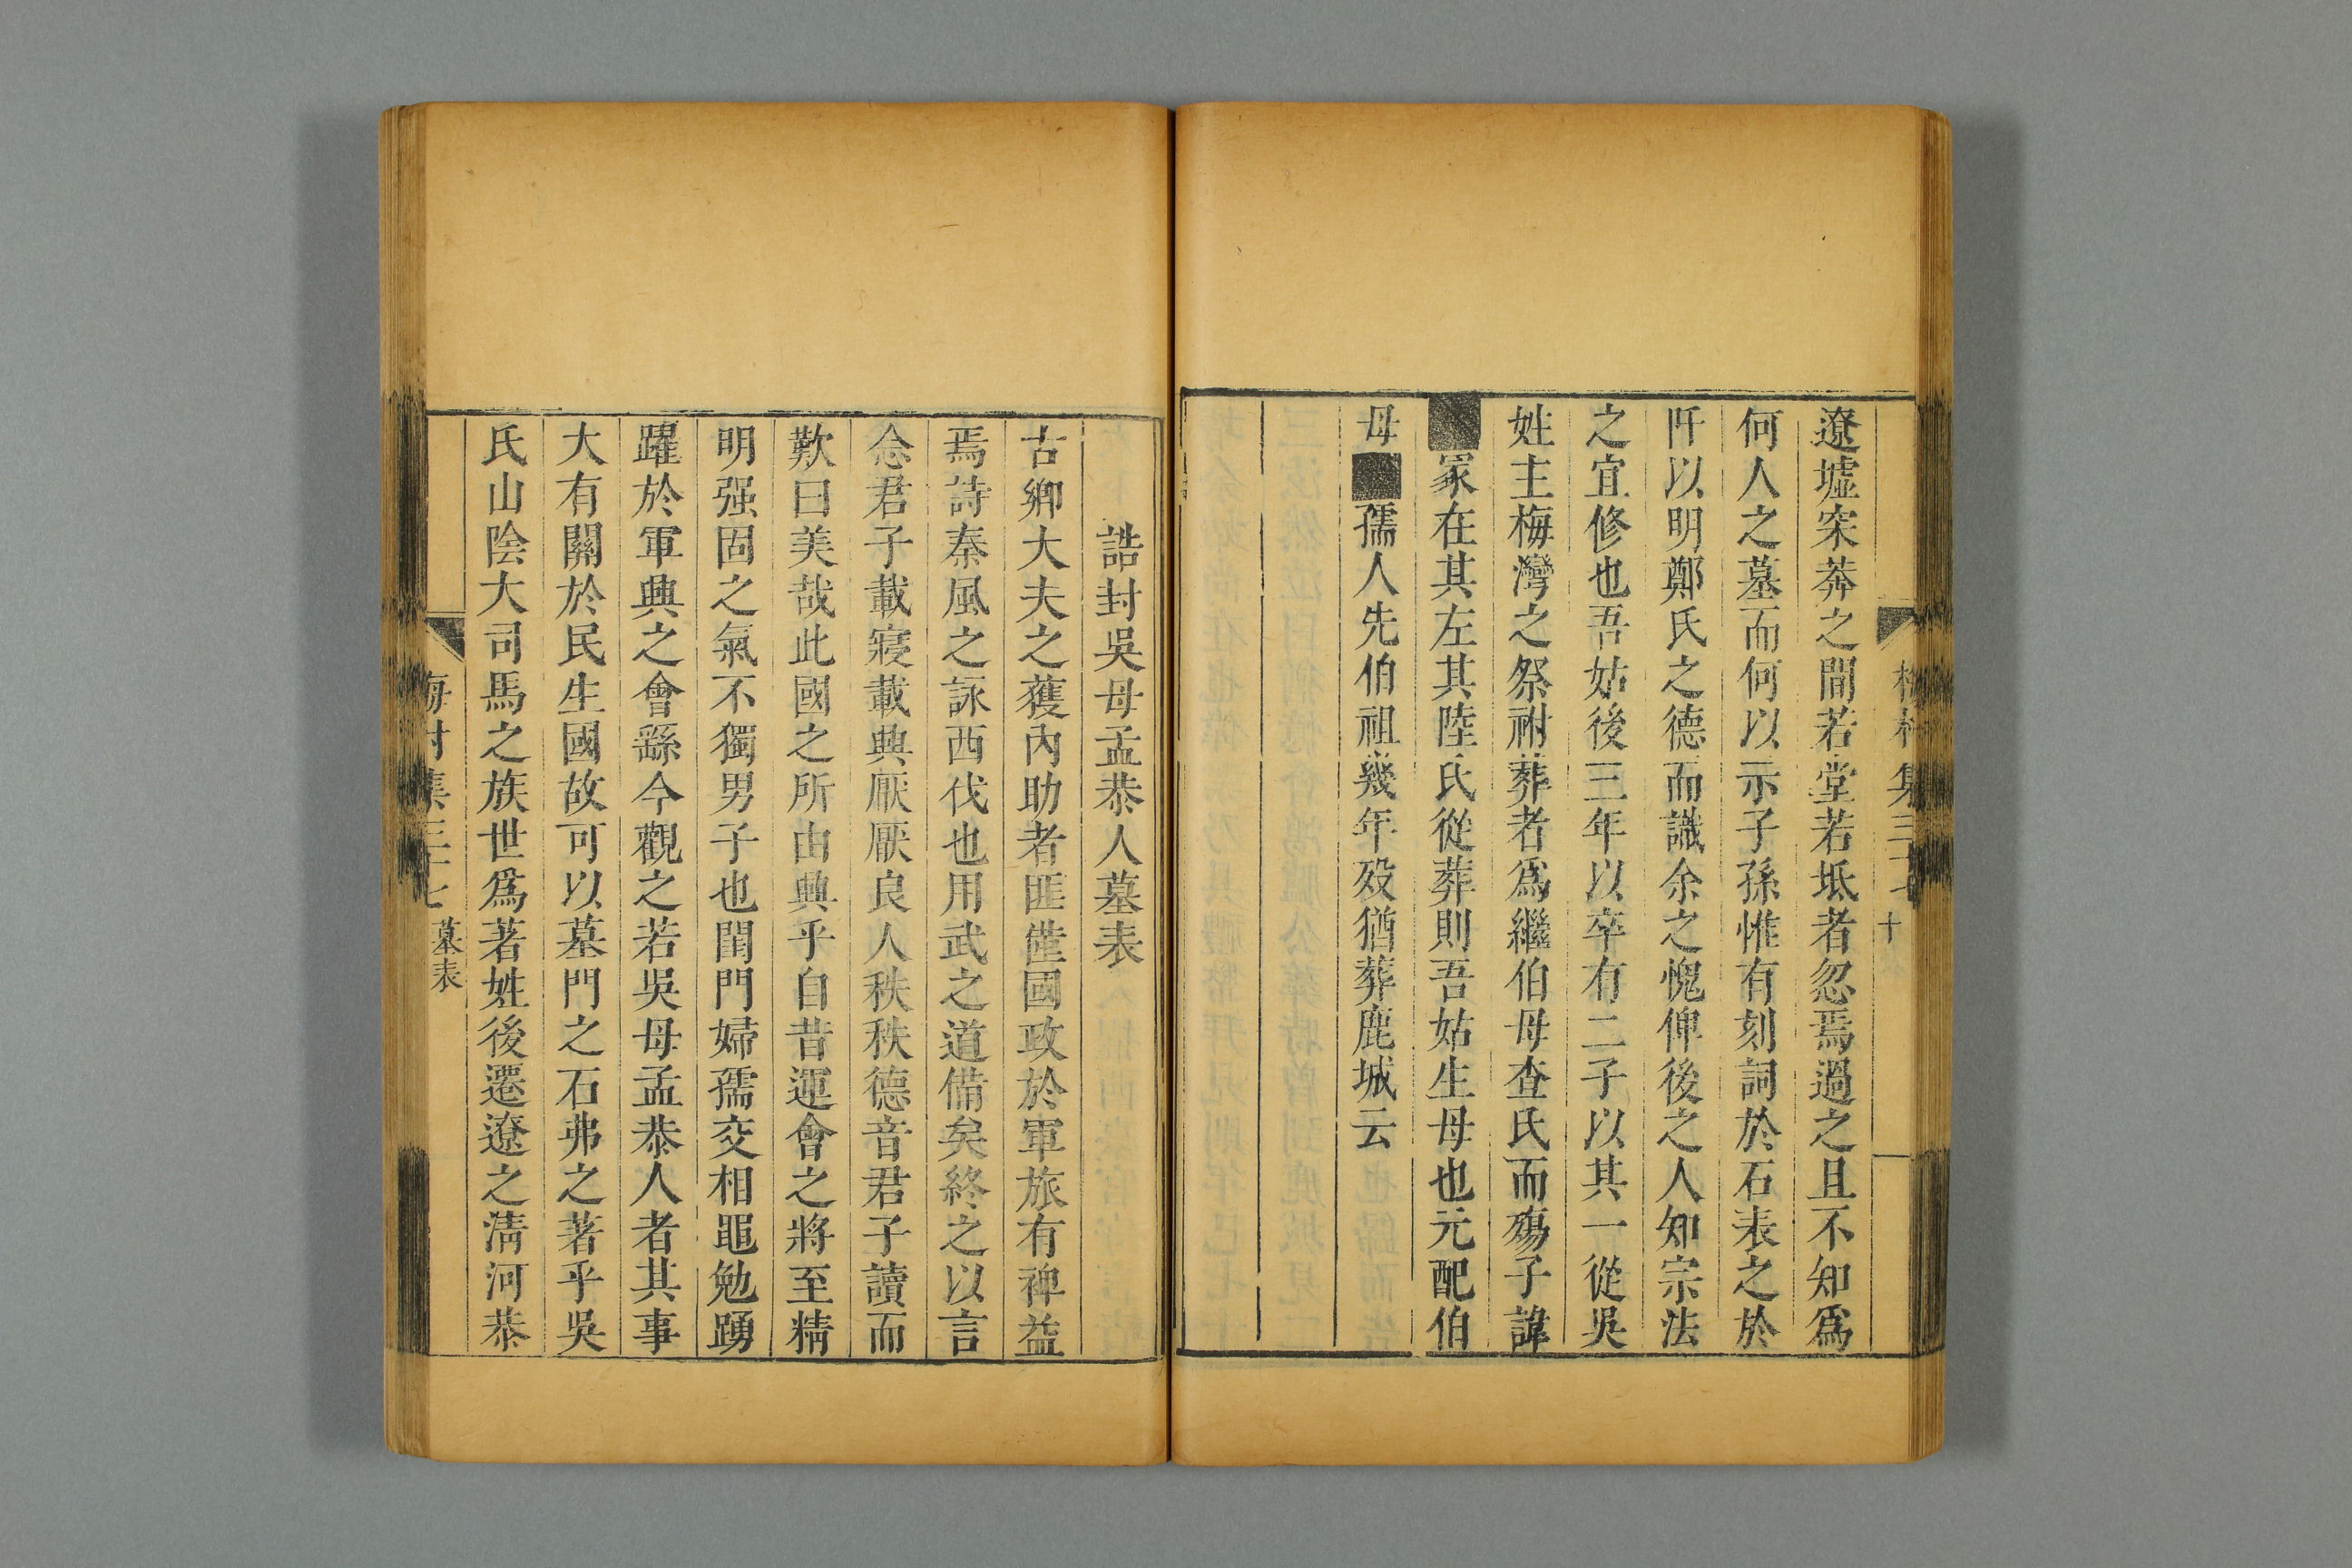 遼墟寀莽之間若堂若坻者忽焉過之且不知爲
何人之墓而何以示子孫惟有刻詞於石表之於
阡以明鄭氏之德而識余之愧俾後之人知宗法
之宜修也吾姑後三年以卒有二子以其一從吳
姓主梅灣之祭祔葬者爲繼伯母查氏而殤子諱
■冢在其左其陸氏從葬則吾姑生母也元配伯
母■孺人先伯祖幾年歿猶葬鹿城云
誥封吳母孟恭人墓表
古卿大夫之獲內助者匪惟國政於軍旅有裨益
焉詩秦風之詠西伐也用武之道備矣終之以言
念君子載寢載興厭厭良人秩秩德音君子讀而
歎曰美哉此國之所由興乎自昔運會之將至精
明强固之氣不獨男子也閨門婦孺交相黽勉踴
躍於軍興之會繇今觀之若吳母孟恭人者其事
大有關於民生國故可以墓門之石弗之著乎吳
氏山陰大司馬之族世爲著姓後遷遼之淸河恭
梅村集三十七 墓表
十